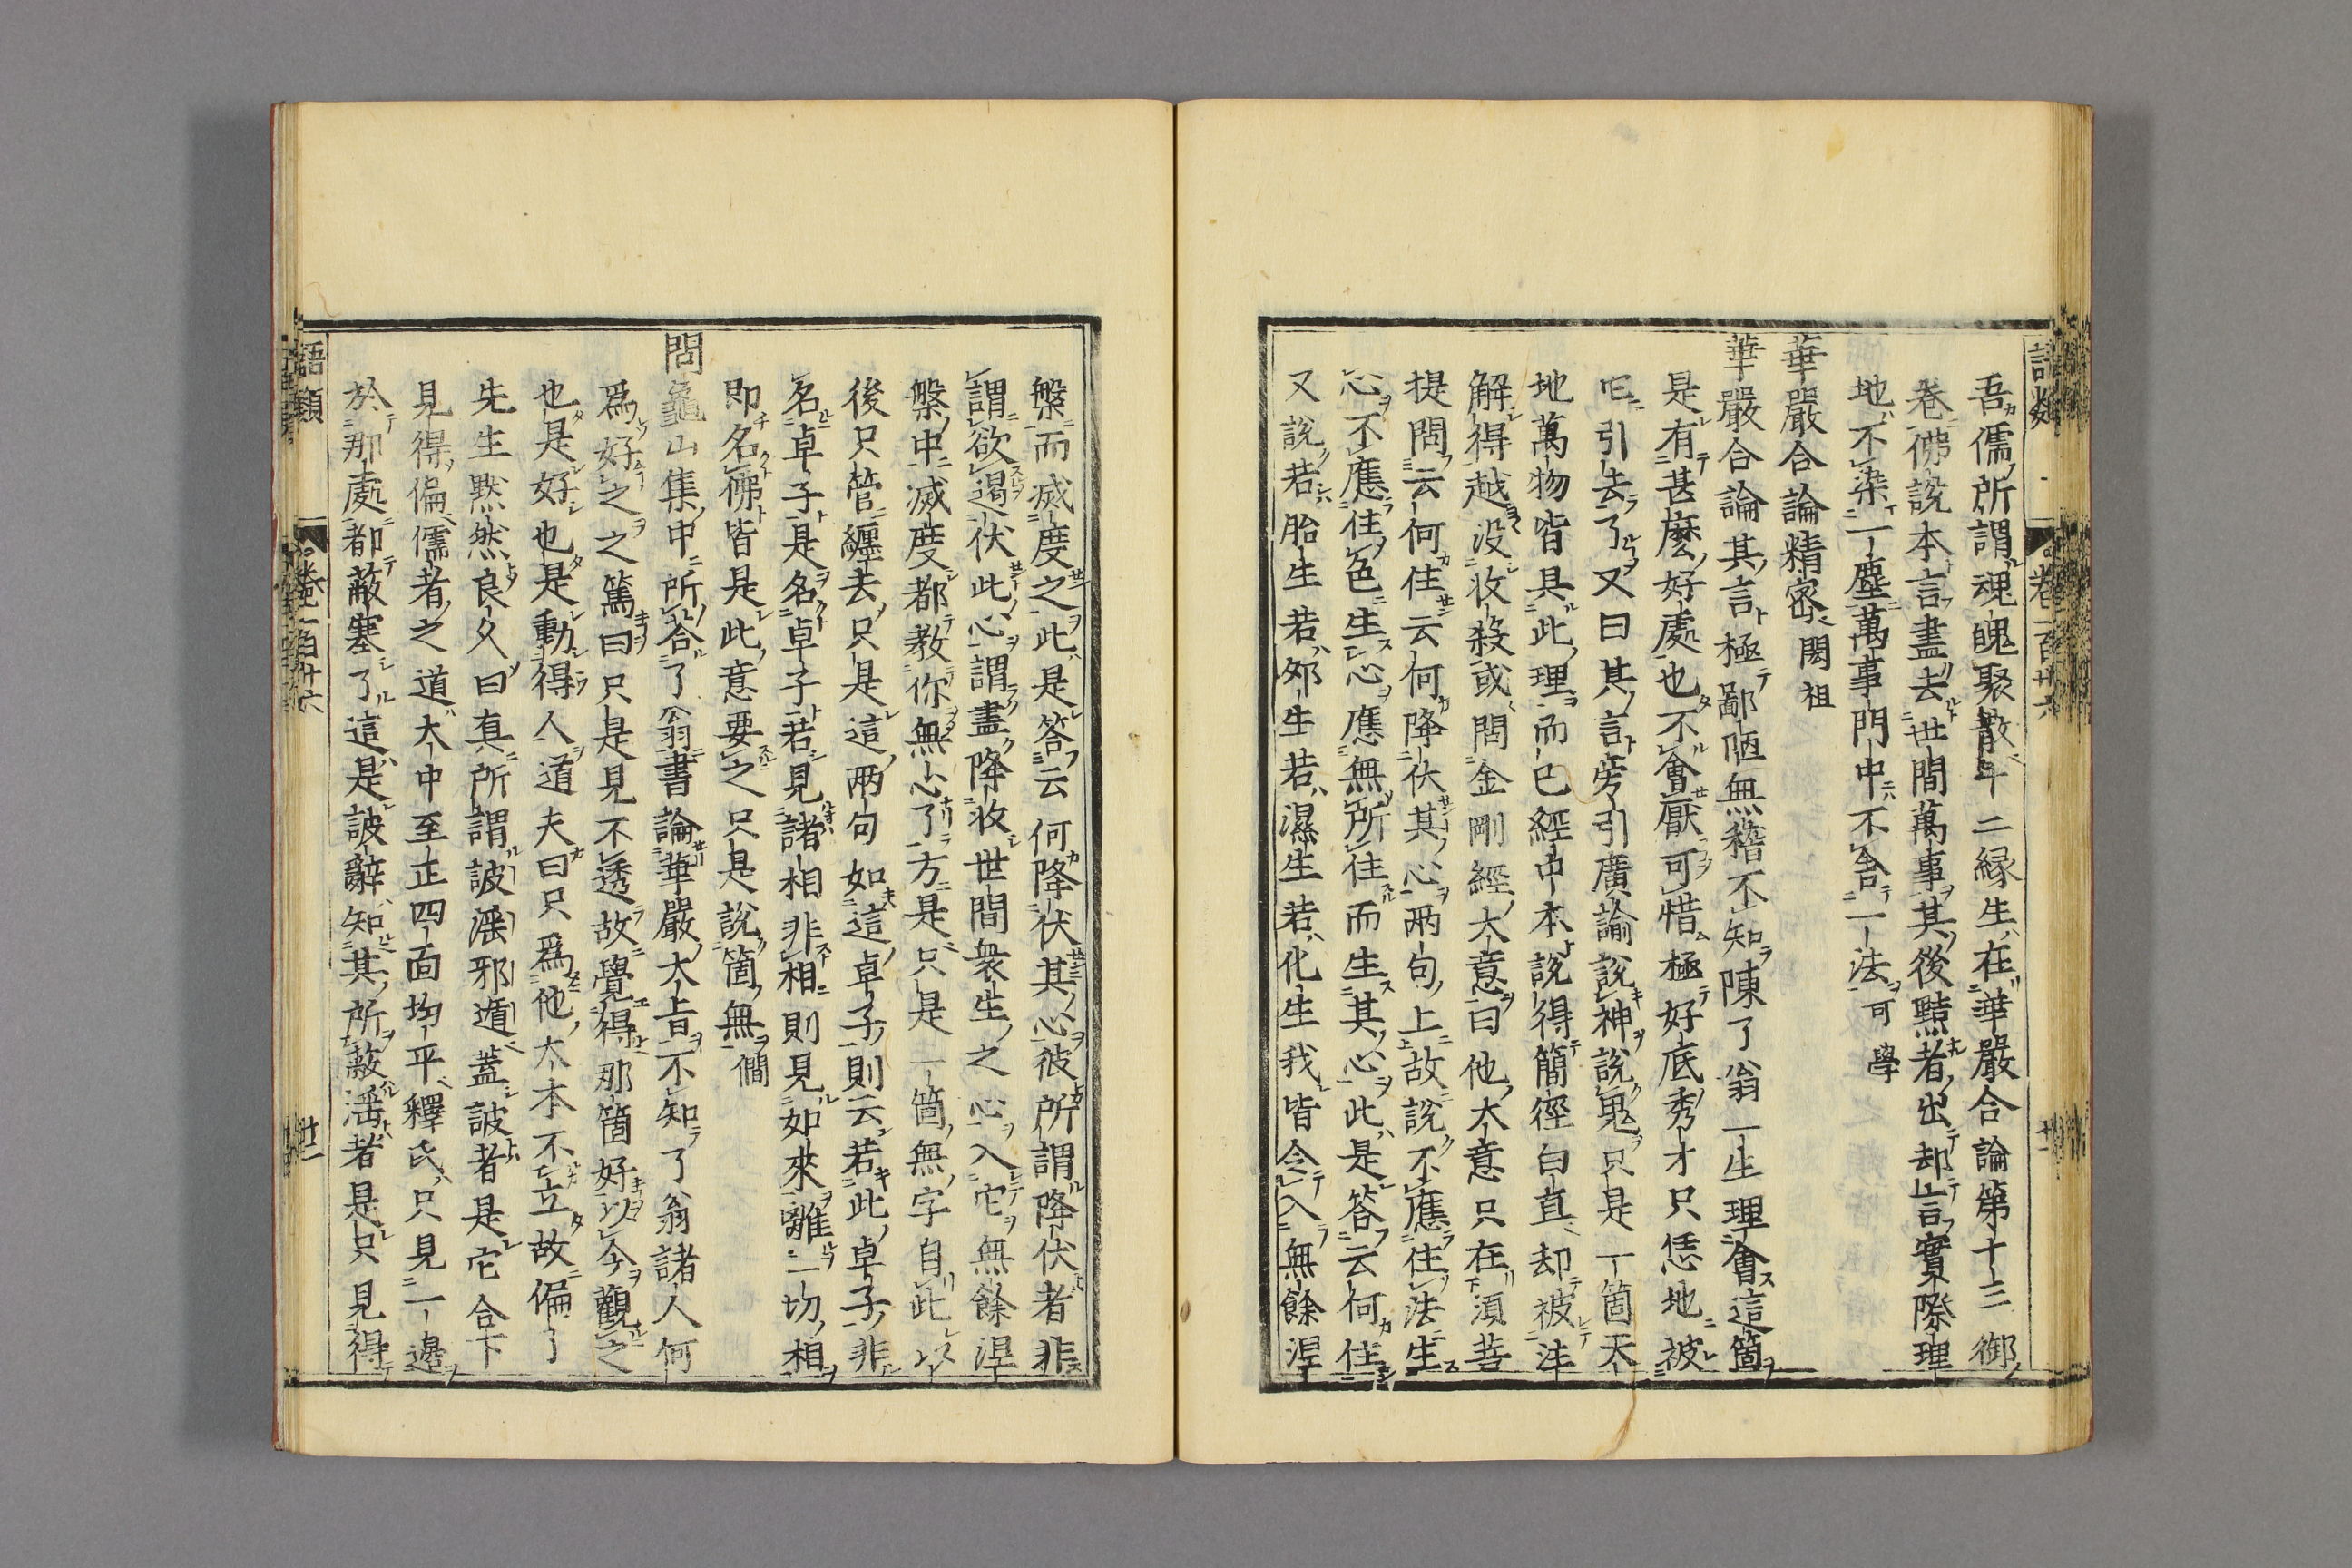 語類 卷一百廿六 廿一
吾儒所謂魂魄聚散十二緣生在華嚴合論第十三御
卷佛說本言盡去世間萬事其後黠者出却言實際理
地不染一塵萬事門中不舍一法可學
華嚴合論精密閎祖
華嚴合論其言極鄙陋無稽不知陳了翁一生理會這箇
是有甚麼好處也不會厭可惜極好底秀才只恁地被
它引去了又曰其言旁引廣諭說神說鬼只是一箇天
地萬物皆具此理而已經中本說得簡徑白直却被注
解得越沒收殺或問金剛經大意曰他大意只在湏菩
提問云何住云何降伏其心兩句上故說不應住法生
心不應住色生心應無所住而生其心此是答云何住
又說若胎生若夘生若濕生若化生我皆令入無餘涅
槃而滅度之此是答云何降伏其心彼所謂降伏者非
謂欲遏伏此心謂盡降收世間衆生之心入它無餘涅
槃中滅度都教你無心了方是只是一箇無字自此以
後只管纏去只是這兩句如這卓子則云若此卓子非
名卓子是名卓子若見諸相非相則見如來離一切相
即名佛皆是此意要之只是說箇無僩
問龜山集中所答了翁書論華嚴大旨不知了翁諸人何
爲好之之篤曰只是見不透故覺得那箇好以今觀之
也是好也是動得人道夫曰只爲他大本不立故偏了
先生默然良久曰真所謂詖淫邪遁蓋詖者是它合下
見得偏儒者之道大中至正四面均平釋氏只見一邊
於那處都蔽塞了這是詖辭知其所蔽淫者是只見得
語類 卷一百廿六 廿二